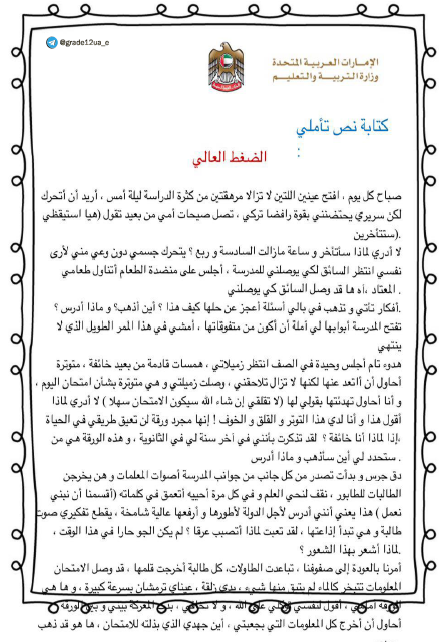 @grade12ua_e
الإمارات العربية المتحدة
وزارة التربية والتعليم
كتابة نص تأملي
:
الضغط العالي
صباح كل يوم ، افتح عينين اللتين لا تزالا مرهقتين من كثرة الدراسة ليلة أمس ، أريد أن أتحرك
لكن سريري يحتضنني بقوة رافضا تركي ، تصل صيحات أمي من بعيد تقول (هيا استيقظي
.(ستتأخرين
لا أدري لماذا سأتأخر و ساعة مازالت السادسة و ربع ؟ يتحرك جسمي دون وعي مني لأرى
نفسي انتظر السائق لكي يوصلني للمدرسة ، أجلس على منضدة الطعام أتناول طعامي
. المعتاد ،أه ها قد وصل السائق كي يوصلني
.أفكار تأتي و تذهب في بالي أسئلة أعجز عن حلها كيف هذا ؟ أين أذهب؟ و ماذا أدرس ؟
تفتح المدرسة أبوابها لي أملة أن أكون من متفوقاتها ، أمشي في هذا الممر الطويل الذي لا
ينتهي
هدوء تام أجلس وحيدة في الصف انتظر زميلاتي ، همسات قادمة من بعيد خائفة ، متوترة
أحاول أن أبتعد عنها لكنها لا تزال تلاحقني ، وصلت زميلتي و هي متوترة بشأن امتحان اليوم ،
و أنا أحاول تهدئتها بقولي لها (لا تقلقي إن شاء الله سيكون الامتحان سهلا ) لا أدري لماذا
أقول هذا و أنا لدي هذا التوتر و القلق و الخوف ! إنها مجرد ورقة لن تعيق طريقي في الحياة
،إذا لماذا أنا خائفة ؟ لقد تذكرت بأنني في أخر سنة لي في الثانوية ، و هذه الورقة هي من
. ستحدد لي أين سأذهب و ماذا أدرس
دق جرس و بدأت تصدر من كل جانب من جوانب المدرسة أصوات المعلمات و هن يخرجن
الطالبات للطابور ، نقف لنحي العلم و في كل مرة أحييه أتعمق في كلماته (أقسمنا أن نبني
نعمل ) هذا يعني أنني أدرس لأجل الدولة لأطورها و أرفعها عالية شامخة ، يقطع تفكيري صوت
طالبة و هي تبدأ إذاعتها ، لقد تعبت لماذا أتصبب عرقا ؟ لم يكن الجو حارا في هذا الوقت ،
.لماذا أشعر بهذا الشعور ؟
أمرنا بالعودة إلى صفوفنا ، تباعدت الطاولات، كل طالبة أخرجت قلمها ، قد وصل الامتحان
المعلومات تتبخر كالماء لم يتبق منها شيء ، يدي زلقة ، عيناي ترمشان بسرعة كبيرة ، و ها هي
أحاول أن أخرج كل المعلومات التي بجعبتي ، أين جهدي الذي بذلته للامتحان ، ها هو قد ذهب